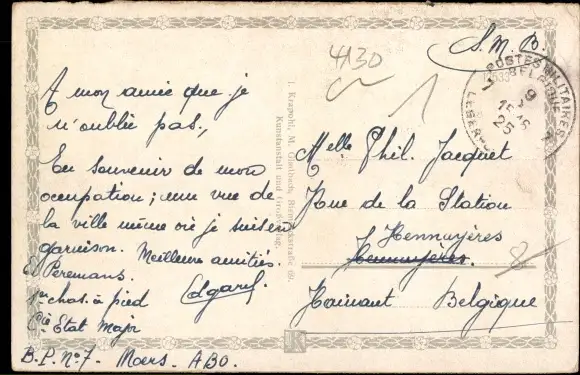 S. M. B.
4130
POSTES MILITAIRES
BELGIQUE
9
25
A mon amie que je
n'oublie pas,
En souvenir de mon
occupation; une vue de
la ville même où je suis en
garnison. Meilleures amitiés.
Edgard
E Peremans.
1er chas. à pied
Cie Etat Major
B.P. No 7. Moers. ABO.
J. Krapohl, M. Gladbach, Bismarckstraße 69.
Kunstanstalt und Großverlag.
Melle Phil. Jacquet
Rue de la Station
Hennuyères
Hennuyères.
Hainaut Belgique
8